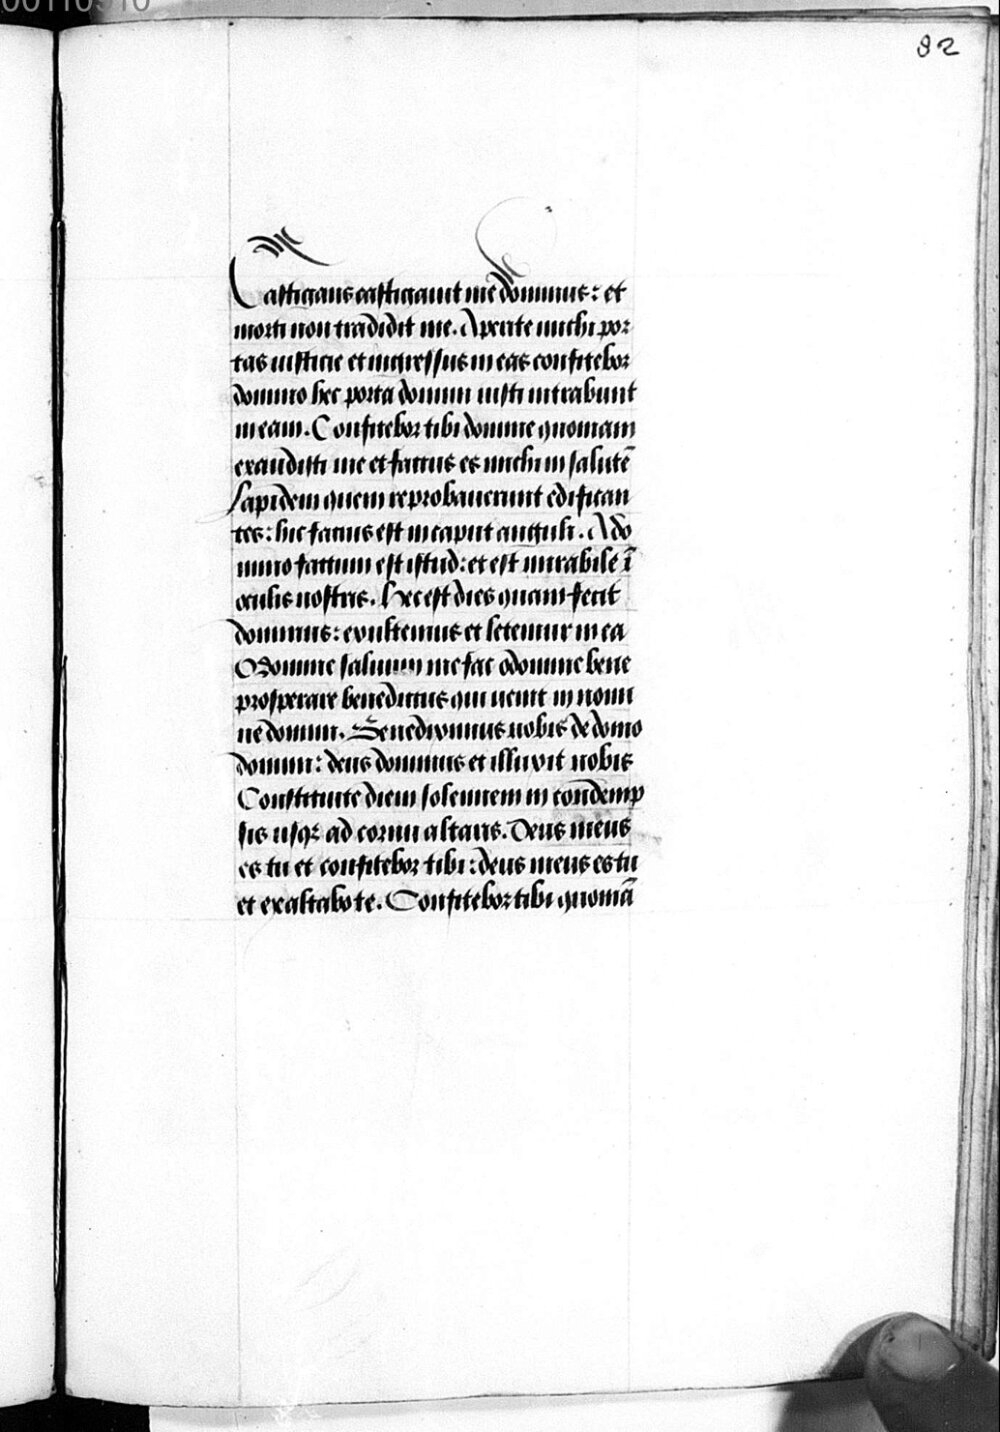 00110910
82
Castigans castigauit me dominus: et
morti non tradidit me. Aperite michi por
tas iusticie et ingressus in eas confitebor
domino hec porta domini iusti intrabunt
in eam. Confitebor tibi domine quoniam
exaudisti me et factus es michi in salutē
Lapidem quem reprobauerunt edifican
tes: hic factus est in caput anguli. A do
mino factum est istud: et est mirabile ī
oculis nostris. Hec est dies quam fecit
dominus: exultemus et letemur in ea
O domine saluum me fac o domine bene
prosperare benedictus qui uenit in nomi
ne domini. Benediximus uobis de domo
domini: deus dominus et illuxit nobis
Constituite diem solennem in condemp
sis usqz ad cornu altaris. Deus meus
es tu et confitebor tibi: deus meus es tu
et exaltabo te. Confitebor tibi quoniā